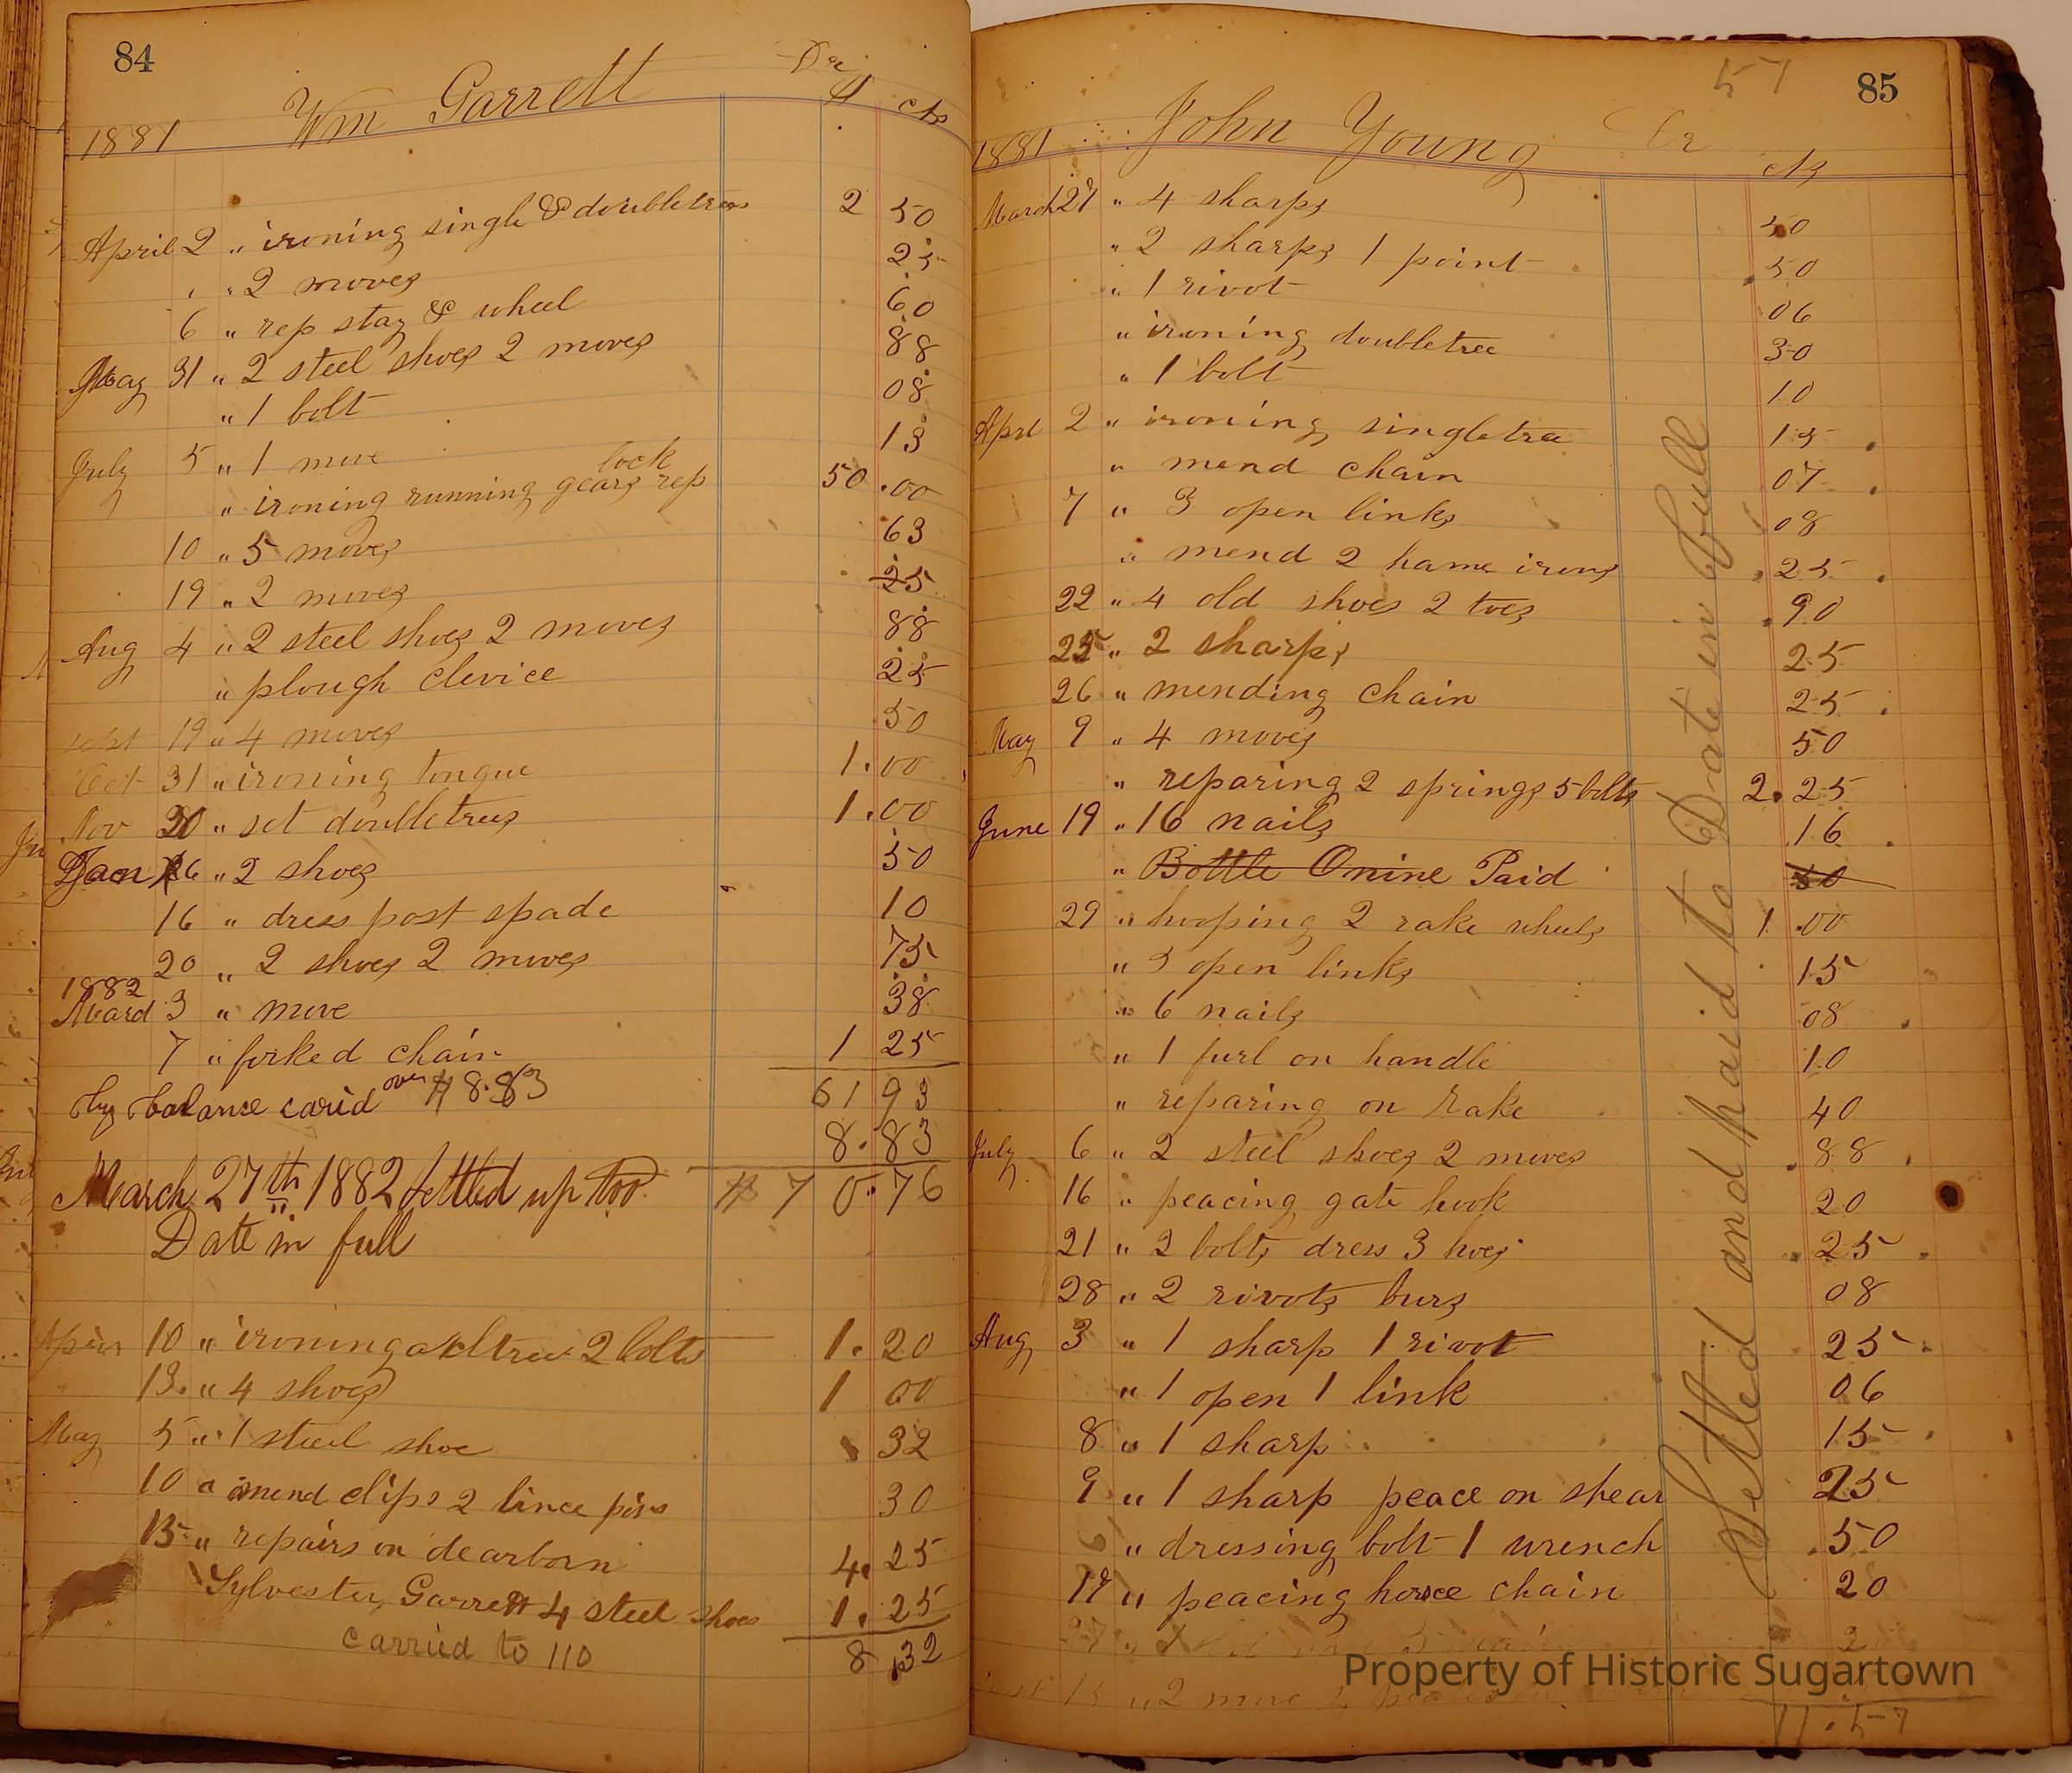 84
Wm Garrett Dr
1881 $ cts
April 2 " ironing single & doubletrees 2 50
" " 2 moves 25
6 " rep stay & wheel 60
May 31 " 2 steel shoes 2 moves 88
" 1 bolt 08
July 5 " 1 move 13
lock
" ironing running gears rep 50.00
10 " 5 moves 63
19 " 2 moves 25
Aug 4 " 2 steel shoes 2 moves 88
" plough clevice 25
Sept 19 " 4 moves 50
Oct 31 " ironing tongue 1.00
Nov 30 " set doubletrees 1.00
Jan 16 " 2 shoes 50
16 " dress post spade 10
20 " 2 shoes 2 moves 75
1882
March 3 " move 38
7 " forked chain 1 25
by balance carid over $8.83 61 93
8.83
March 27th 1882 Settled up too $70.76
Date in full
10 " ironing axeltree 2 bolts 1.20
13 " 4 shoes 1 00
May 5 " 1 steel shoe 32
10 " mend clips 2 lince pins 30
15 " repairs on dearborn 4.25
Sylvester Garrett 4 steel shoes 1.25
carried to 110 8.32
57 85
John Young Dr
1881 cts
March 27 " 4 sharps 50
" 2 sharps 1 point .50
" 1 rivot 06
" ironing doubletree 30
" 1 bolt 10
Aprl 2 " ironing singletree 15
" mend chain 07
7 " 3 open links 08
" mend 2 hame irons .25
22 " 4 old shoes 2 toes .90
25 " 2 sharps 25
26 " mending chain 25
May 9 " 4 moves 50
" reparing 2 springs 5 bolts 2.25
June 19 " 16 nails 16
" Bottle Onine Paid 50
29 " hooping 2 rake wheels 1.00
" 3 open links 15
" 6 nails 08
" 1 furl on handle 10
" reparing on rake 40
July 6 " 2 steel shoes 2 moves .88
16 " peacing gate hook 20
21 " 2 bolts dress 3 hoes .25
28 " 2 rivots burs 08
Aug 3 " 1 sharp 1 rivot 25
" 1 open 1 link 06
8 " 1 sharp 15
9 " 1 sharp peace on shear 25
" dressing bolt 1 wrench .50
" peacing horsee chain 20
27 "
" 2 move
11.57
Settled and paid to Date in full
Property of Historic Sugartown